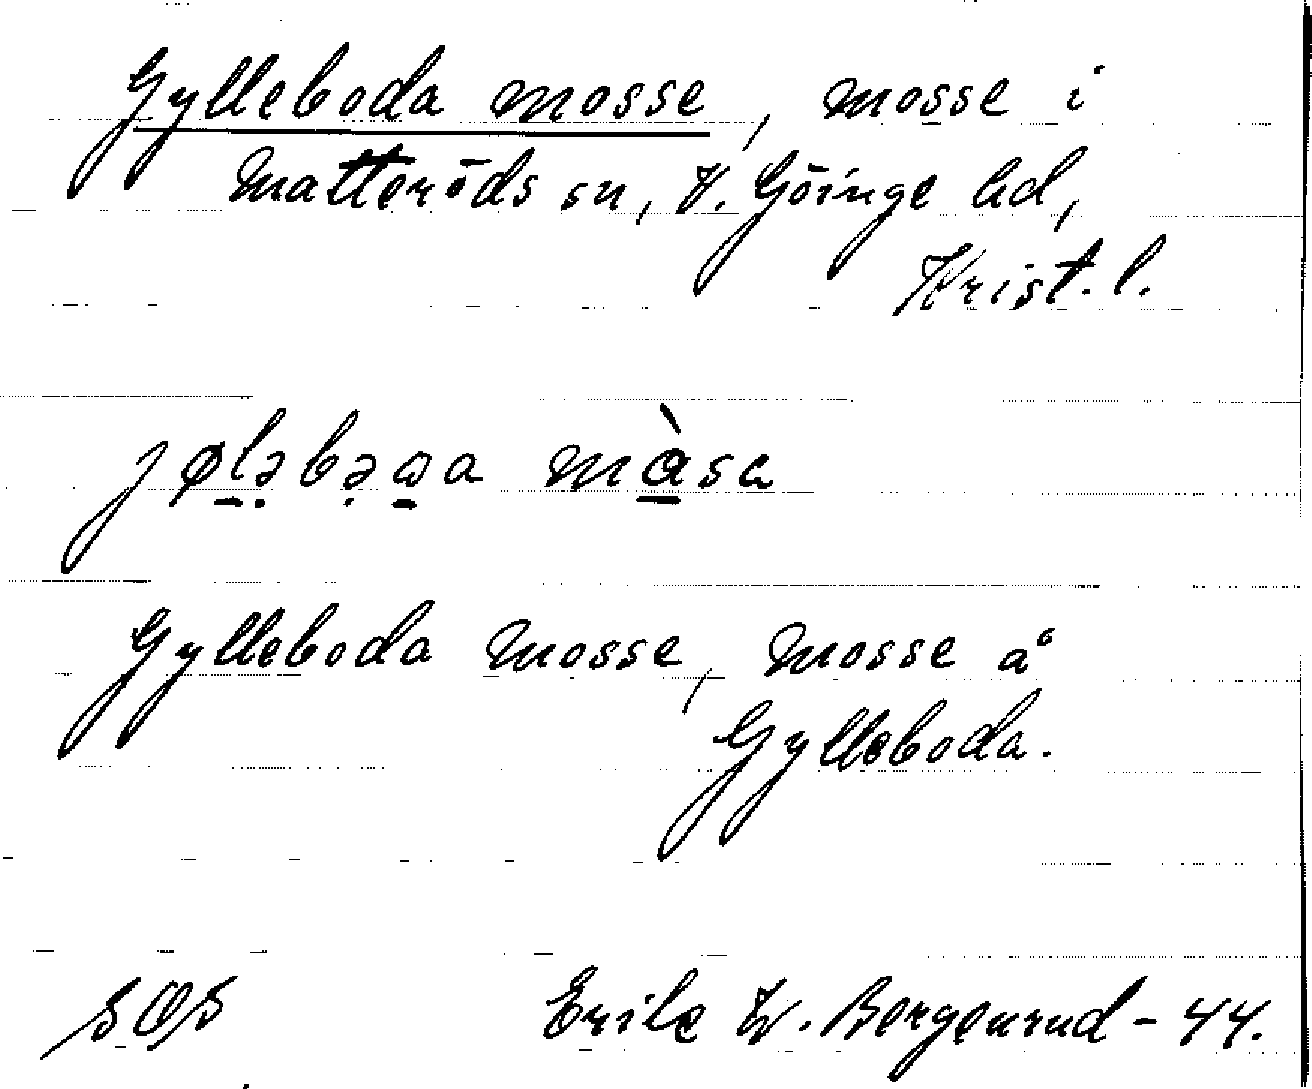 Gylleboda mosse, mosse i
Matteröds sn, V. Göinge hd,
Krist. l.
jøləbəɷa màsa
Gylleboda mosse, mosse å
Gylleboda.
SOS Erik W. Bergenrud - 44.